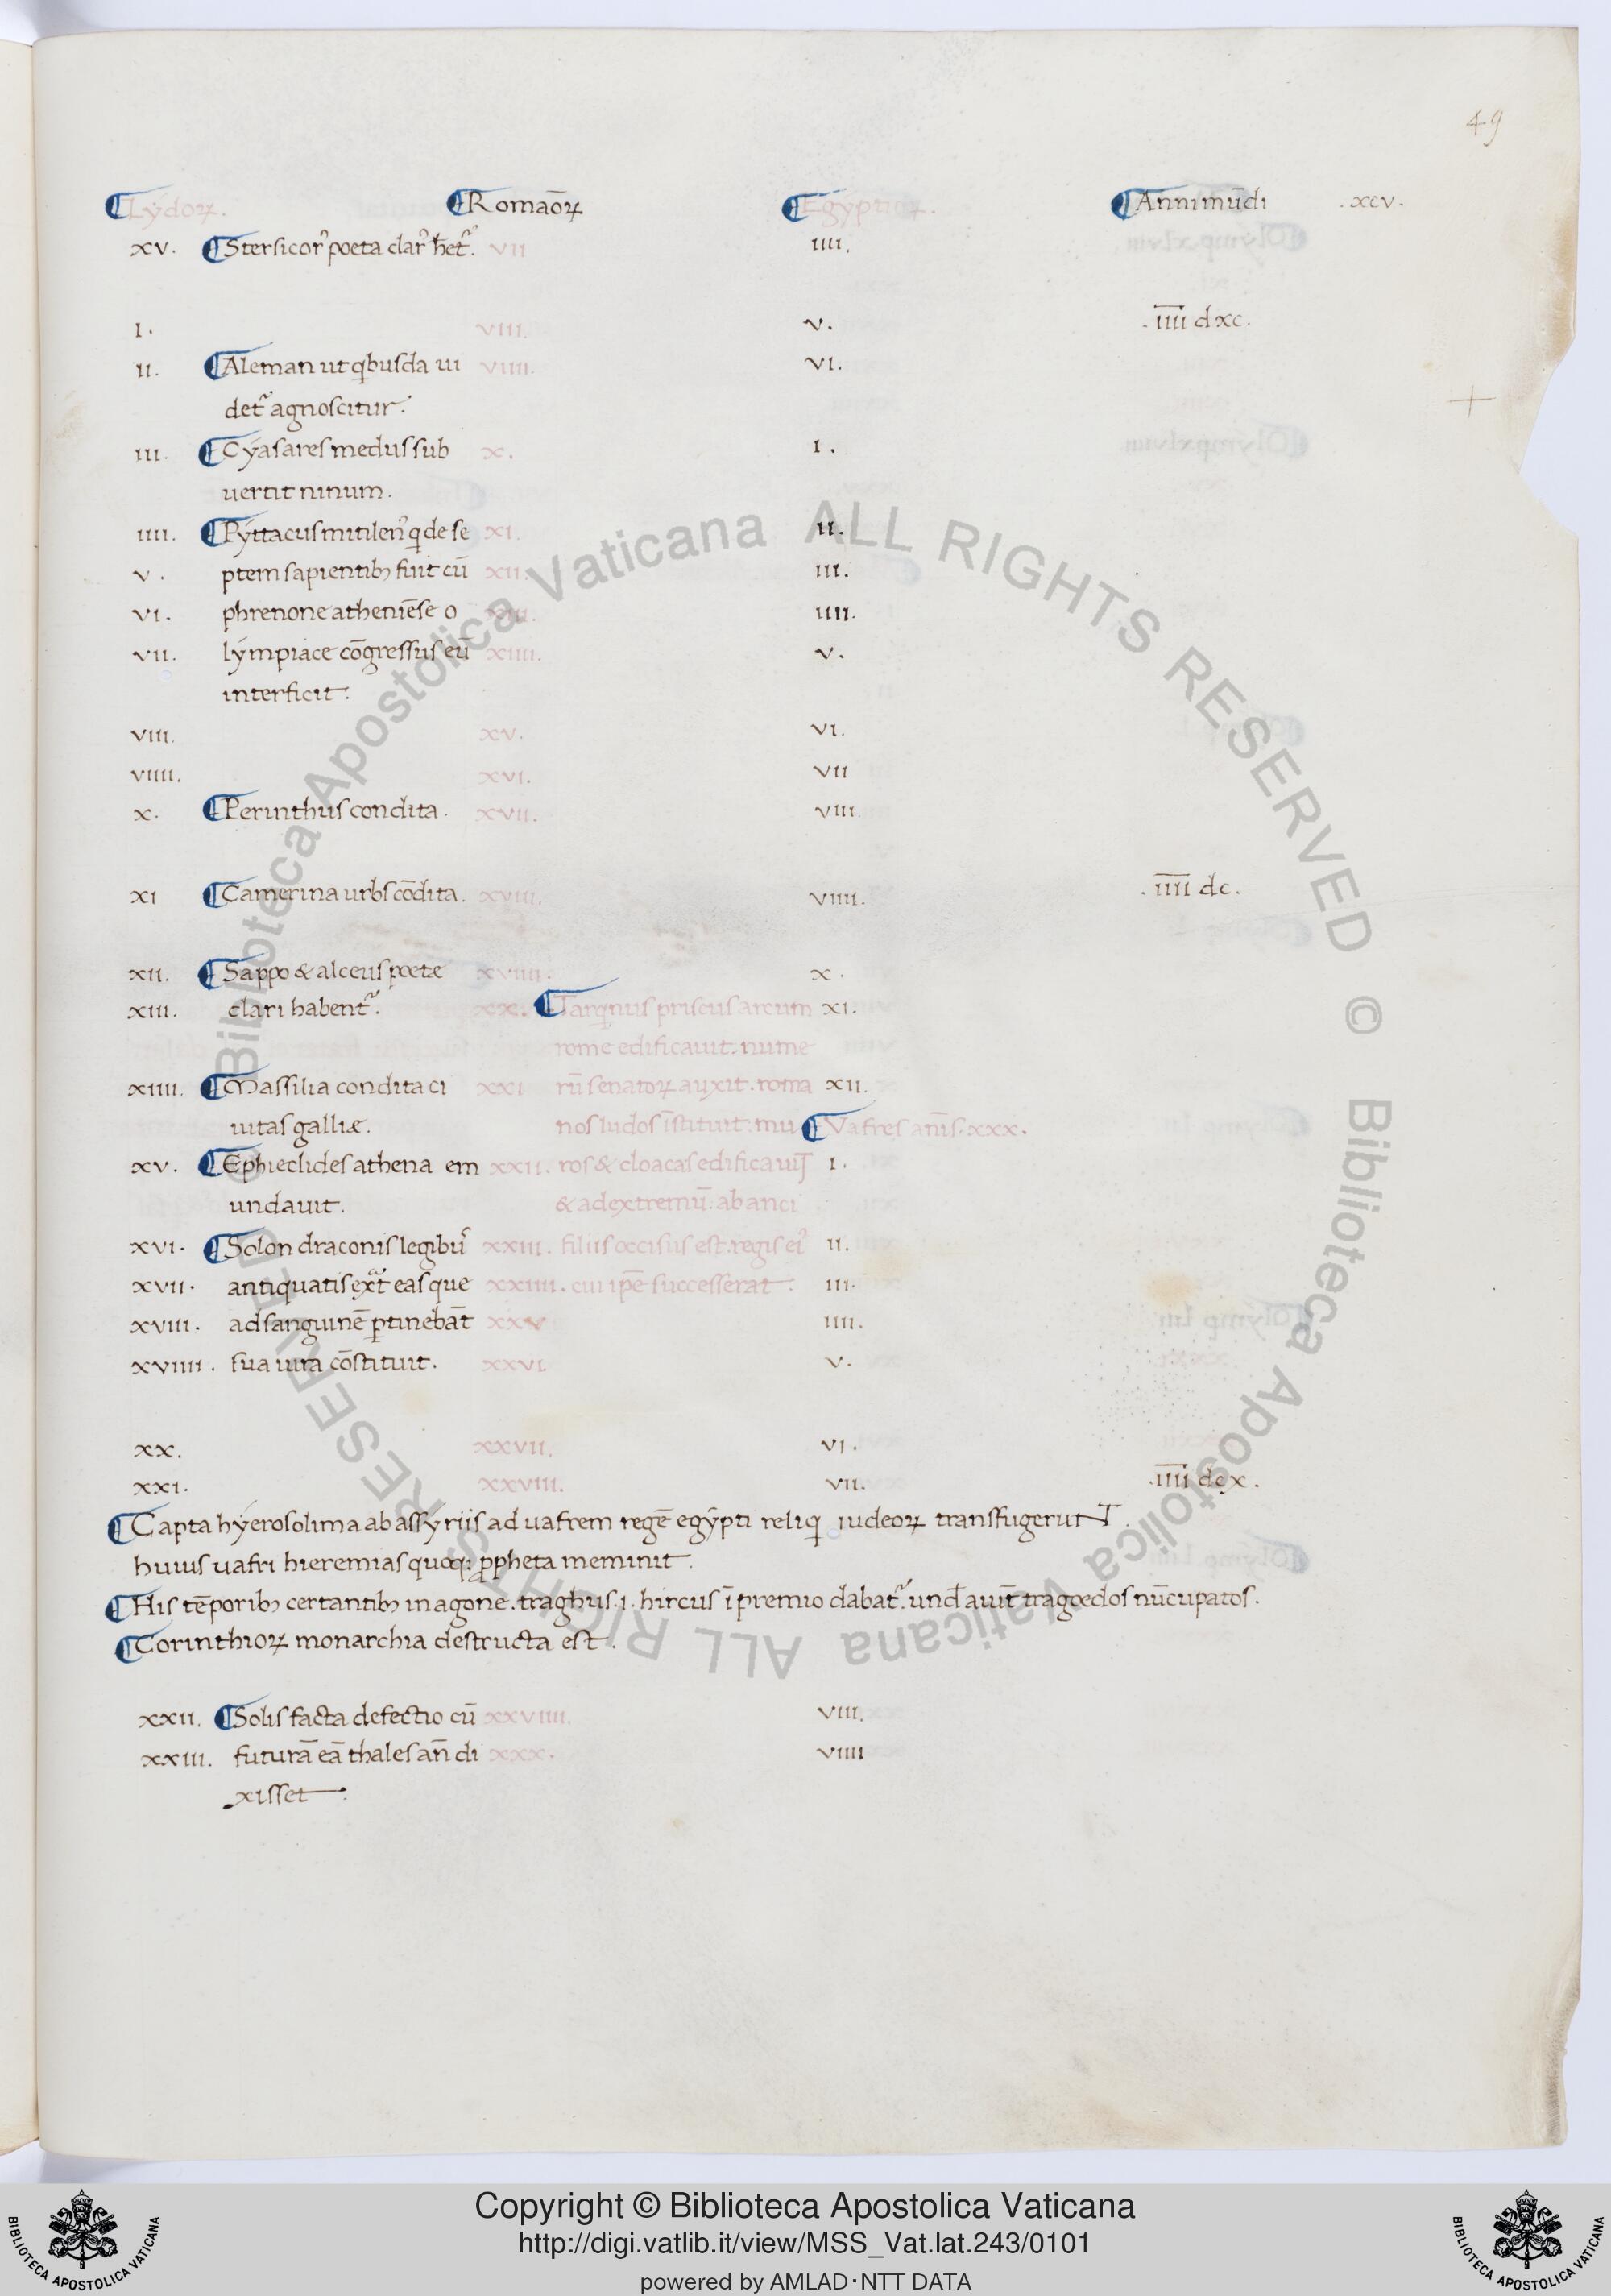 49
Lydoꝝ. Romaōꝝ Egyptioꝝ. Anni mūdi .xcv.
xv. Stersicorꝰ poeta clarꝰ het᷑. vii iiii.
i. viii. v. .iiii dxc.
ii. Aleman ut qbusda ui viiii. vi.
det᷑ agnoscitur.
iii. Cyasares medus sub x. i.
uertit ninum.
iiii. Pyttacus mitilenꝰ q de se xi. ii.
v. ptem sapientibꝫ fuit cū xii. iii.
vi. phrenone atheniēse o xiii. iiii.
vii. lympiace cōgressus eū xiiii. v.
interficit.
viii. xv. vi.
viiii. xvi. vii
x. Perinthus condita. xvii. viii.
xi Camerina urbs cōdita. xviii. viiii. .iiii dc.
xii. Sappo & alceus poete xviiii. x.
xiii. clari habent᷑. xx. Tarqnius priscus arcum xi.
rome edificauit. nume
xiiii. Massilia condita ci xxi rū senatoꝝ auxit. roma xii.
uitas galliæ. nos ludos īstituit. mu Vafres anīs. xxx.
xv. Ephieclides athena em xxii. ros & cloacas edificauit i.
undauit. & ad extremū. ab anci
xvi. Solon draconis legibꝰ xxiii. filiis occisus est. regis eiꝰ ii.
xvii. antiquatis ext eas que xxiiii. cui ipe successerat. iii.
xviii. ad sanguinē ꝑtinebāt xxv iiii.
xviiii. sua iura cōstituit. xxvi. v.
xx. xxvii. vi.
xxi. xxviii. vii. .iiii dcx.
Capta hyerosolima ab assyriis ad uafrem regē egypti reliq iudeoꝝ transfugerut.
huius uafri hieremias quoqꝫ ꝓpheta meminit.
His tēporibꝫ certantibꝫ in agone. traghus. i. hircus ī premio dabat᷑. und aiūt tragoedos nūcupatos.
Corinthioꝝ monarchia destructa est.
xxii. Solis facta defectio cū xxviiii. viii.
xxiii. futurā eā thales añ di xxx. viiii
xisset
Biblioteca Apostolica Vaticana ALL RIGHTS RESERVED © Biblioteca Apostolica Vaticana ALL RIGHTS RESERVED ©
Copyright © Biblioteca Apostolica Vaticana
http://digi.vatlib.it/view/MSS_Vat.lat.243/0101
powered by AMLAD·NTT DATA
BIBLIOTECA APOSTOLICA VATICANA
BIBLIOTECA APOSTOLICA VATICANA